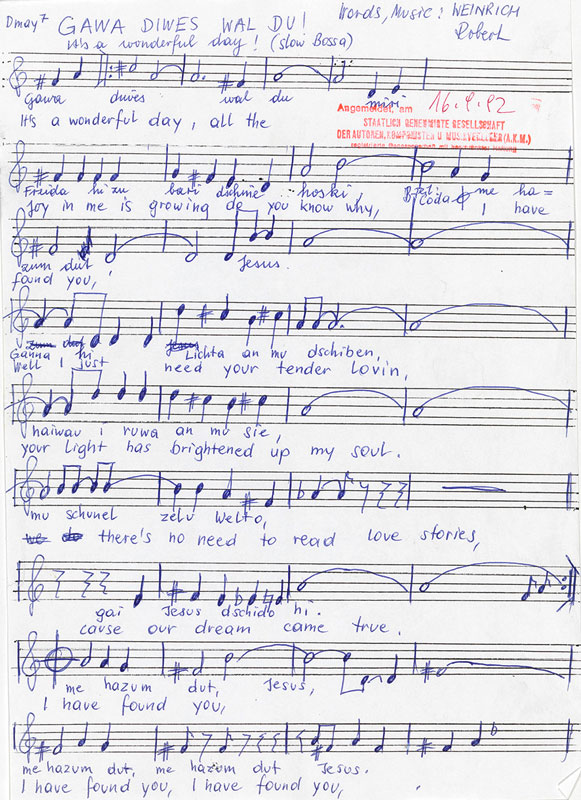 Dmay7 GAWA DIWES WAL DU! Words, Music: WEINRICH
It's a wonderful day! (slow Bossa) Robert
gawa diwes wal du miri
It's a wonderful day, all the
Angemeldet, am 16.9.92
STAATLICH GENEHMIGTE GESELLSCHAFT
DER AUTOREN, KOMPONISTEN U MUSIKVERLEGER (A.K.M.)
Freida hi zu bari dschine hoski, me ha=
Joy in me is growing do you know why, Coda I have
zum dut, Jesus.
found you,
Ganna hi Lichta an mu dschiben,
Well I just need your tender Lovin,
naiwau i ruwa an mu sie,
your Light has brightened up my soul.
mu schunel zelu Welto,
there's no need to read love stories,
gai Jesus dschido hi.
cause our dream came true.
me hazum dut, Jesus,
I have found you,
me hazum dut, me hazum dut Jesus.
I have found you, I have found you,